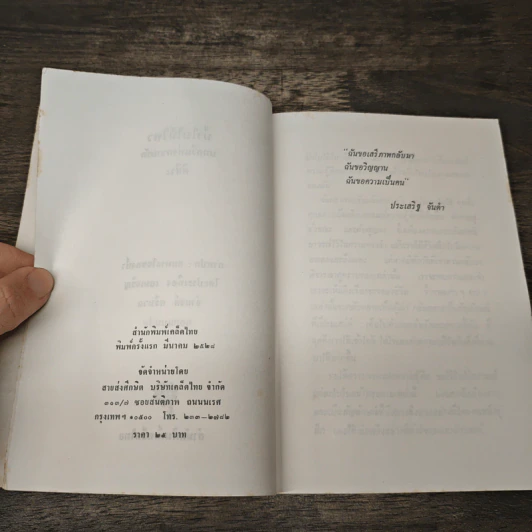 สำนักพิมพ์เคล็ดไทย
พิมพ์ครั้งแรก มีนาคม ๒๕๒๘
จัดจำหน่ายโดย
สายส่งศึกษิต บริษัทเคล็ดไทย จำกัด
๑๑๗/๘ ซอยสันติภาพ ถนนนเรศ
กรุงเทพฯ ๑๐๕๐๐ โทร. ๒๓๓-๒๗๔๒
ราคา ๒๕ บาท
"ฉันขอเสรีภาพกลับมา
ฉันขอวิญญาน
ฉันขอความเป็นคน"
ประเสริฐ จันดำ